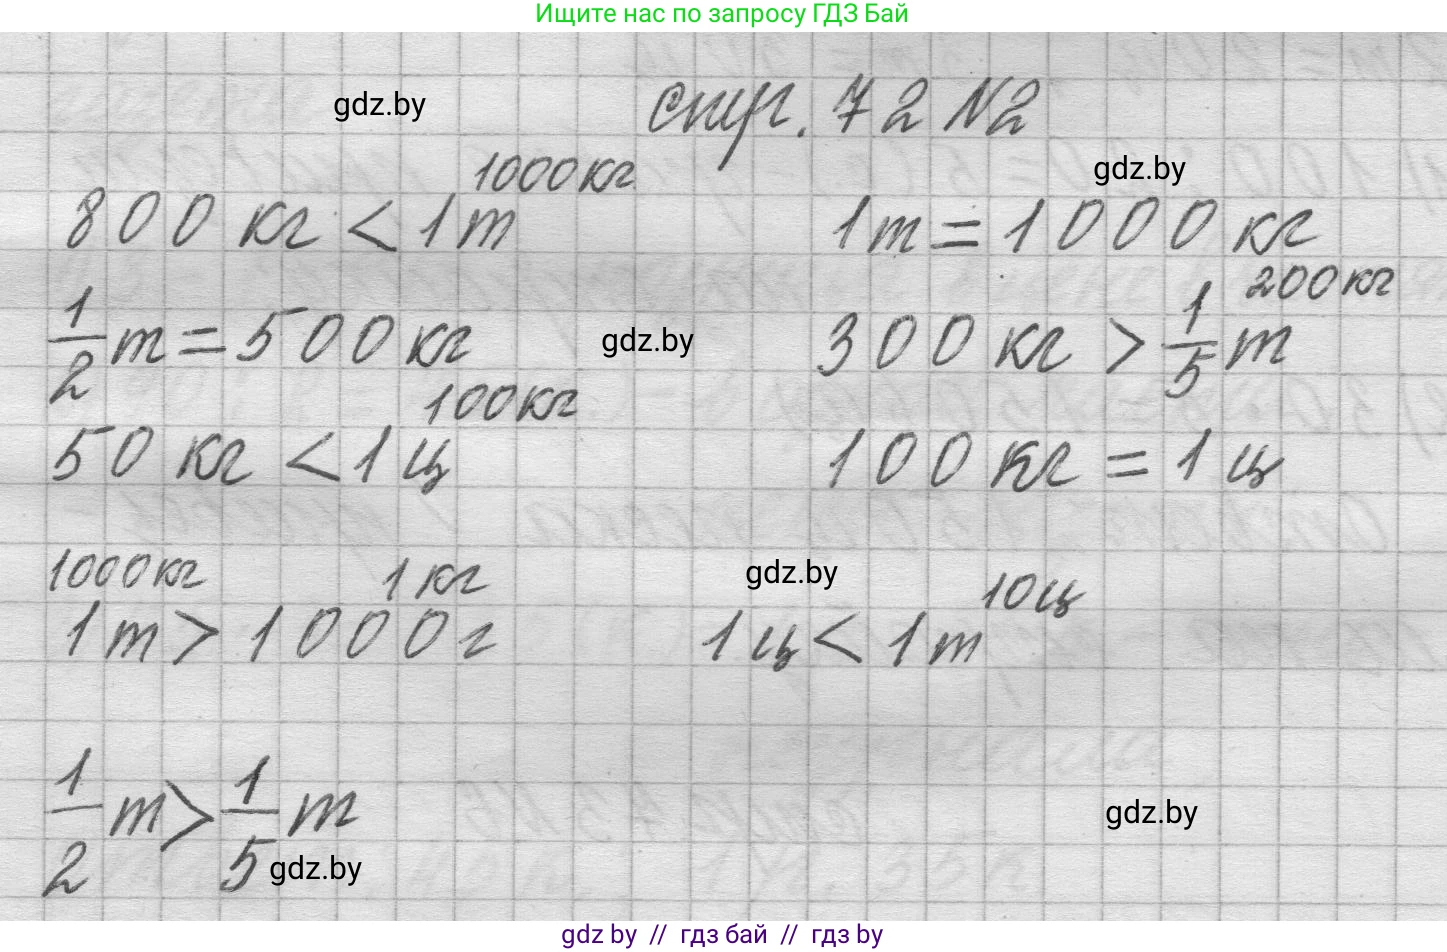 Ищите нас по запросу ГДЗ Бай
gdz.by
стр. 72 N2
gdz.by
1000кг
800 кг < 1 т
1 т = 1000 кг
200кг
1/2 т = 500 кг
gdz.by
300 кг > 1/5 т
100кг
50 кг < 1 ц
100 кг = 1 ц
1000кг 1 кг
1 т > 1000 г
gdz.by
10ц
1 ц < 1 т
1/2 т > 1/5 т
gdz.by
gdz.by
gdz by // гдз бай // гдз by